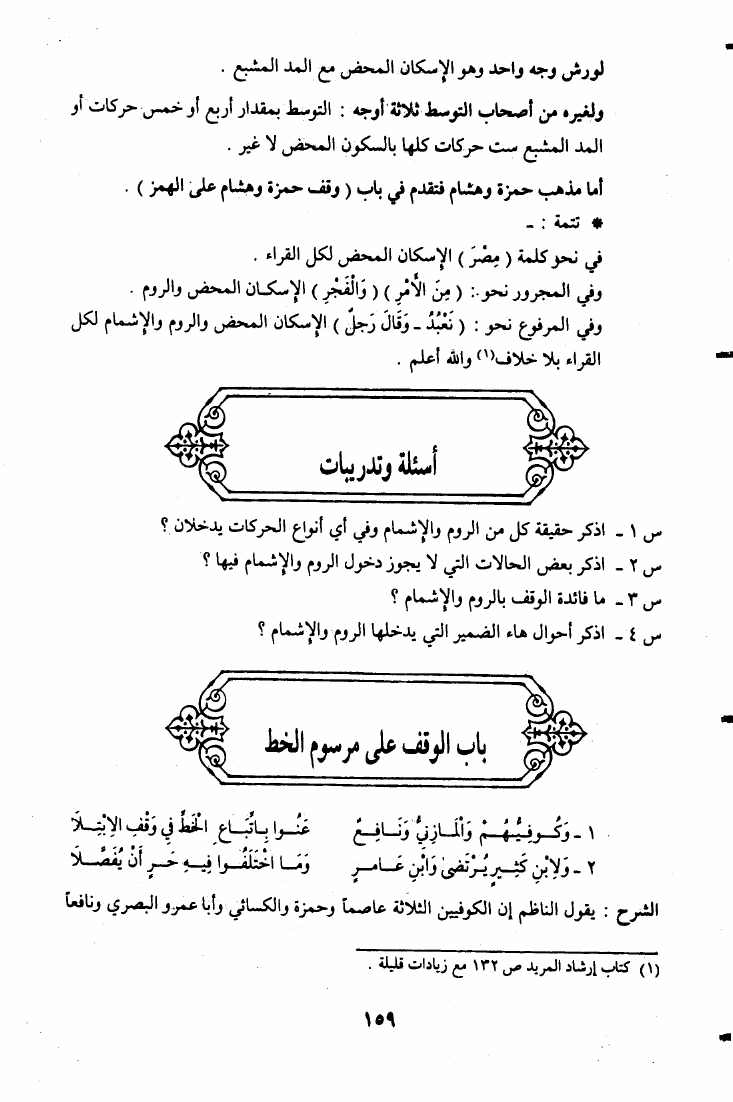 لورش وجه واحد وهو الإسكان المحض مع المد المشبع .
ولغيره من أصحاب التوسط ثلاثة أوجه : التوسط بمقدار أربع أو خمس حركات أو
المد المشبع ست حركات كلها بالسكون المحض لا غير .
أما مذهب حمزة وهشام فتقدم في باب ( وقف حمزة وهشام على الهمز ) .
* تتمة : ـ
في نحو كلمة ( مِصْرَ ) الإسكان المحض لكل القراء .
وفي المجرور نحو : ( مِنَ الْأَمْرِ ) ( وَالْفَجْرِ ) الإسكان المحض والروم .
وفي المرفوع نحو : ( نَعْبُدُ ـ وَقَالَ رَجلٌ ) الإسكان المحض والروم والإشمام لكل
القراء بلا خلاف(١) والله أعلم .
أسئلة وتدريبات
س ١ ـ اذكر حقيقة كل من الروم والإشمام وفي أي أنواع الحركات يدخلان ؟
س ٢ ـ اذكر بعض الحالات التي لا يجوز دخول الروم والإشمام فيها ؟
س ٣ ـ ما فائدة الوقف بالروم والإشمام ؟
س ٤ ـ اذكر أحوال هاء الضمير التي يدخلها الروم والإشمام ؟
باب الوقف على مرسوم الخط
١ ـ وَكُـوفِيُّـهُـمْ وَالْمَـازِنِيُّ وَنَـافِـعٌ عَنُـوا بِـاتِّبَـاعِ الْخَطِّ فِي وَقْفِ الِابْتِـلَا
٢ ـ وَلِابْنِ كَثِـيـرٍ يُـرْتَضَى وَابْنِ عَـامـرٍ وَمَـا اخْتَلَفُـوا فِيـهِ حَـرٍ أَنْ يُفَصَّـلَا
الشرح : يقول الناظم إن الكوفيين الثلاثة عاصماً وحمزة والكسائي وأبا عمرو البصري ونافعاً
(١) كتاب إرشاد المريد ص ١٣٢ مع زيادات قليلة .
١٥٩